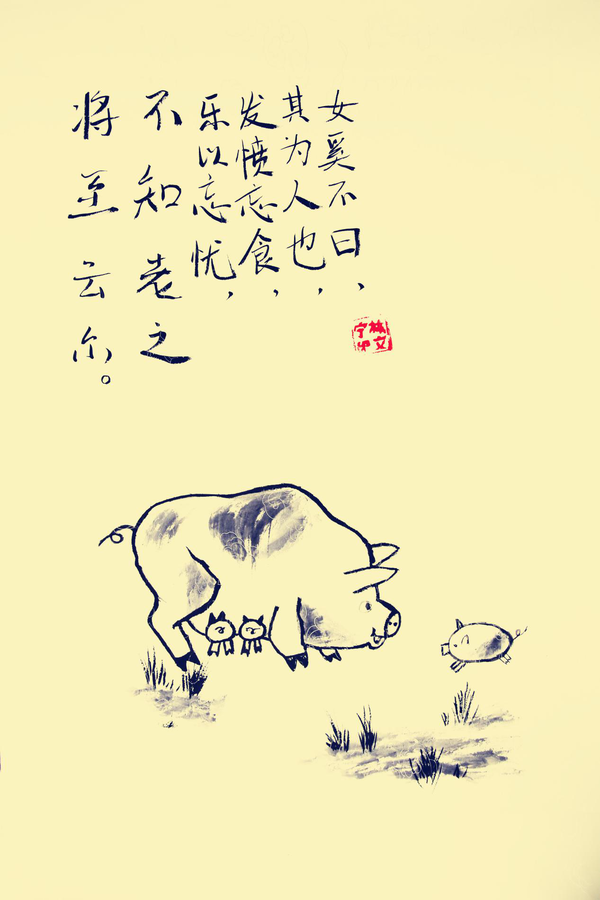 女奚不曰，
其为人也，
发愤忘食，
乐以忘忧，
不知老之
将至云尔。
林文
宁印